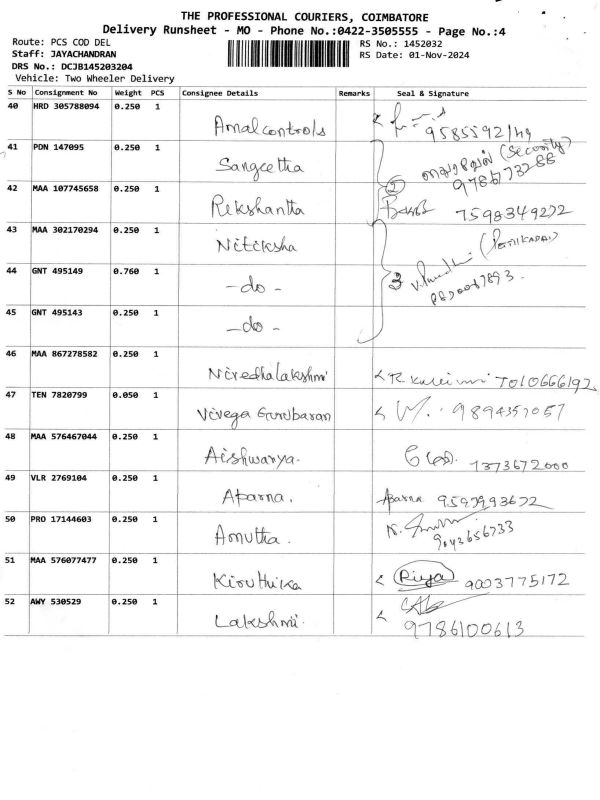 THE PROFESSIONAL COURIERS, COIMBATORE
Delivery Runsheet - MO - Phone No.:0422-3505555 - Page No.:4
Route: PCS COD DEL
RS No.: 1452032
Staff: JAYACHANDRAN
RS Date: 01-Nov-2024
DRS No.: DCJB145203204
Vehicle: Two Wheeler Delivery
S No Consignment No Weight PCS Consignee Details Remarks Seal & Signature
40 HRD 305788094 0.250 1
Amalcontrols
41 PDN 147095 0.250 1
Sangeetha (Security)
42 MAA 107745658 0.250 1
Rekshantha 7598349272
43 MAA 302170294 0.250 1
Nitiksha
44 GNT 495149 0.760 1
-do- 3
45 GNT 495143 0.250 1
-do-
46 MAA 867278582 0.250 1
Nivedhalakshmi
47 TEN 7820799 0.050 1
Vivega Gurubaran 9894357057
48 MAA 576467044 0.250 1
Aishwarya. 7373672000
49 VLR 2769104 0.250 1
Aparna. Aparna
50 PRO 17144603 0.250 1
Amutha. 9043656733
51 MAA 576077477 0.250 1
Kiruthika Riya 9003775172
52 AWY 530529 0.250 1
Lakshmi. 9786100613